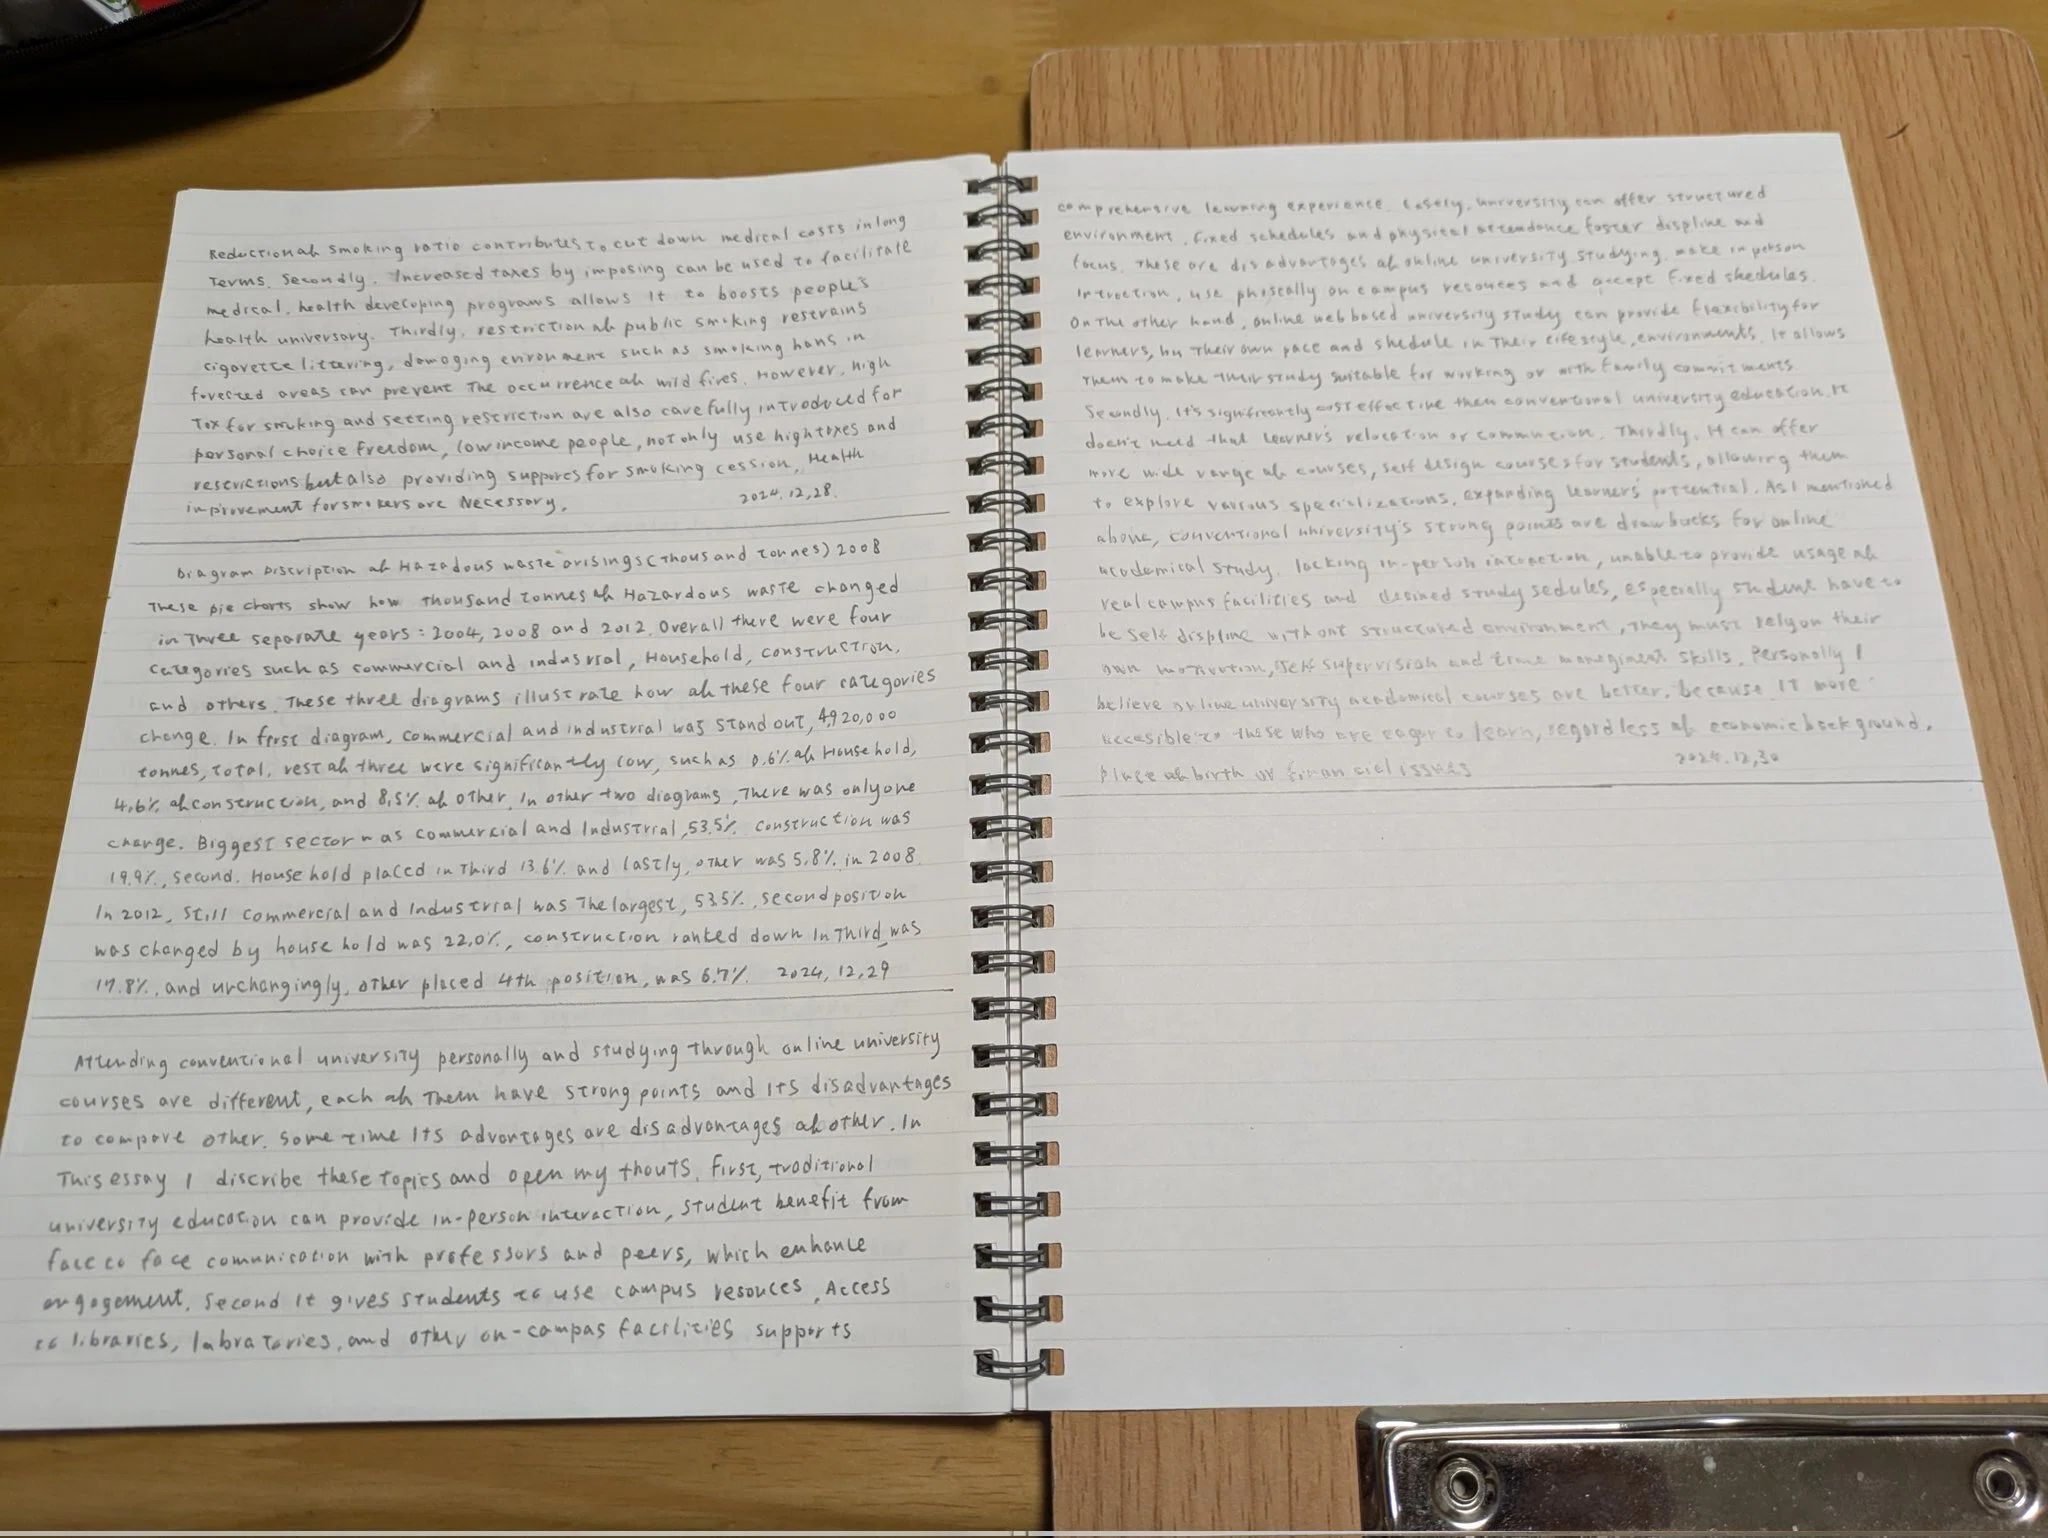 Reduction of smoking ratio contributes to cut down medical costs in long
Terms. Secondly. Increased taxes by imposing can be used to facilitate
medical, health developing programs allows it to boosts people's
health universary. Thirdly, restriction of public smoking restrains
cigarette littering, damaging enironment such as smoking bans in
forested areas can prevent the occurrence of wild fires. However, high
Tax for smoking and setting restriction are also carefully introduced for
personal choice freedom, low income people, not only use high taxes and
restrictions but also providing supports for smoking cession, Health
improvement for smokers are Necessary.
2024.12,28.
Diagram Discription of Hazadous waste arisings (thousand tonnes) 2008
These pie charts show how thousand tonnes of Hazardous waste changed
in Three separate years: 2004, 2008 and 2012. Overall there were four
categories such as commercial and indusrial, Household, construction,
and others. These three diagrams illustrate how of these four categories
change. In first diagram, commercial and industrial was stand out, 4,920,000
tonnes, total, rest of three were significantly low, such as 0.6% of Household,
4,6% of construction, and 8,5% of other. In other two diagrams, There was only one
change. Biggest sector was commercial and Industrial, 53.5%. construction was
19.9%, second. House hold placed in Third 13.6% and lastly, other was 5.8% in 2008.
In 2012, still commercial and Industrial was The largest, 53.5%, second position
was changed by house hold was 22,0%, construction ranked down In Third was
17.8%, and unchangingly, other placed 4th position, was 6.7%. 2024, 12,29
Attending conventional university personally and studying through online university
courses are different, each of Them have strong points and its disadvantages
to compare other. Some time its advantages are disadvantages of other. In
This essay I discribe these topics and open my thouts. First, traditional
university education can provide in-person interaction, student benefit from
face to face comunication with professors and peers, which enhance
engagement. Second it gives students to use campus resouces, Access
to libraries, labratories, and other on-campas facilities supports
comprehensive learning experience. Lastly, university can offer structured
environment. fixed schedules and physical attendance foster displine and
focus. These are disadvantages of online university studying. make in person
intraction, use phisically on campus resouces and accept fixed shedules.
On the other hand, online web based university study can provide flexibility for
learners, by Their own pace and shedule in Their lifestyle, environments. It allows
them to make their study suitable for working or with family commitments
Secondly. It's significantly cost effective then conventional university education. It
doesn't need that learner's relocation or commution. Thirdly, It can offer
more wide range of courses, self design courses for students, allowing them
to explore various specializations. expanding learners' pottential. As I mentioned
above, conventional university's strong points are drawbacks for online
academical study. lacking in-person intraction, unable to provide usage of
real campus facilities and desined study sedules, especially student have to
be self displine without structured environment, they must rely on their
own motivation, self supervision and time managiment skills. Personally I
believe online university academical courses are better, because it more
accesible to these who are eager to learn, regardless of economic background,
place of birth or financial issues
2024.12,30